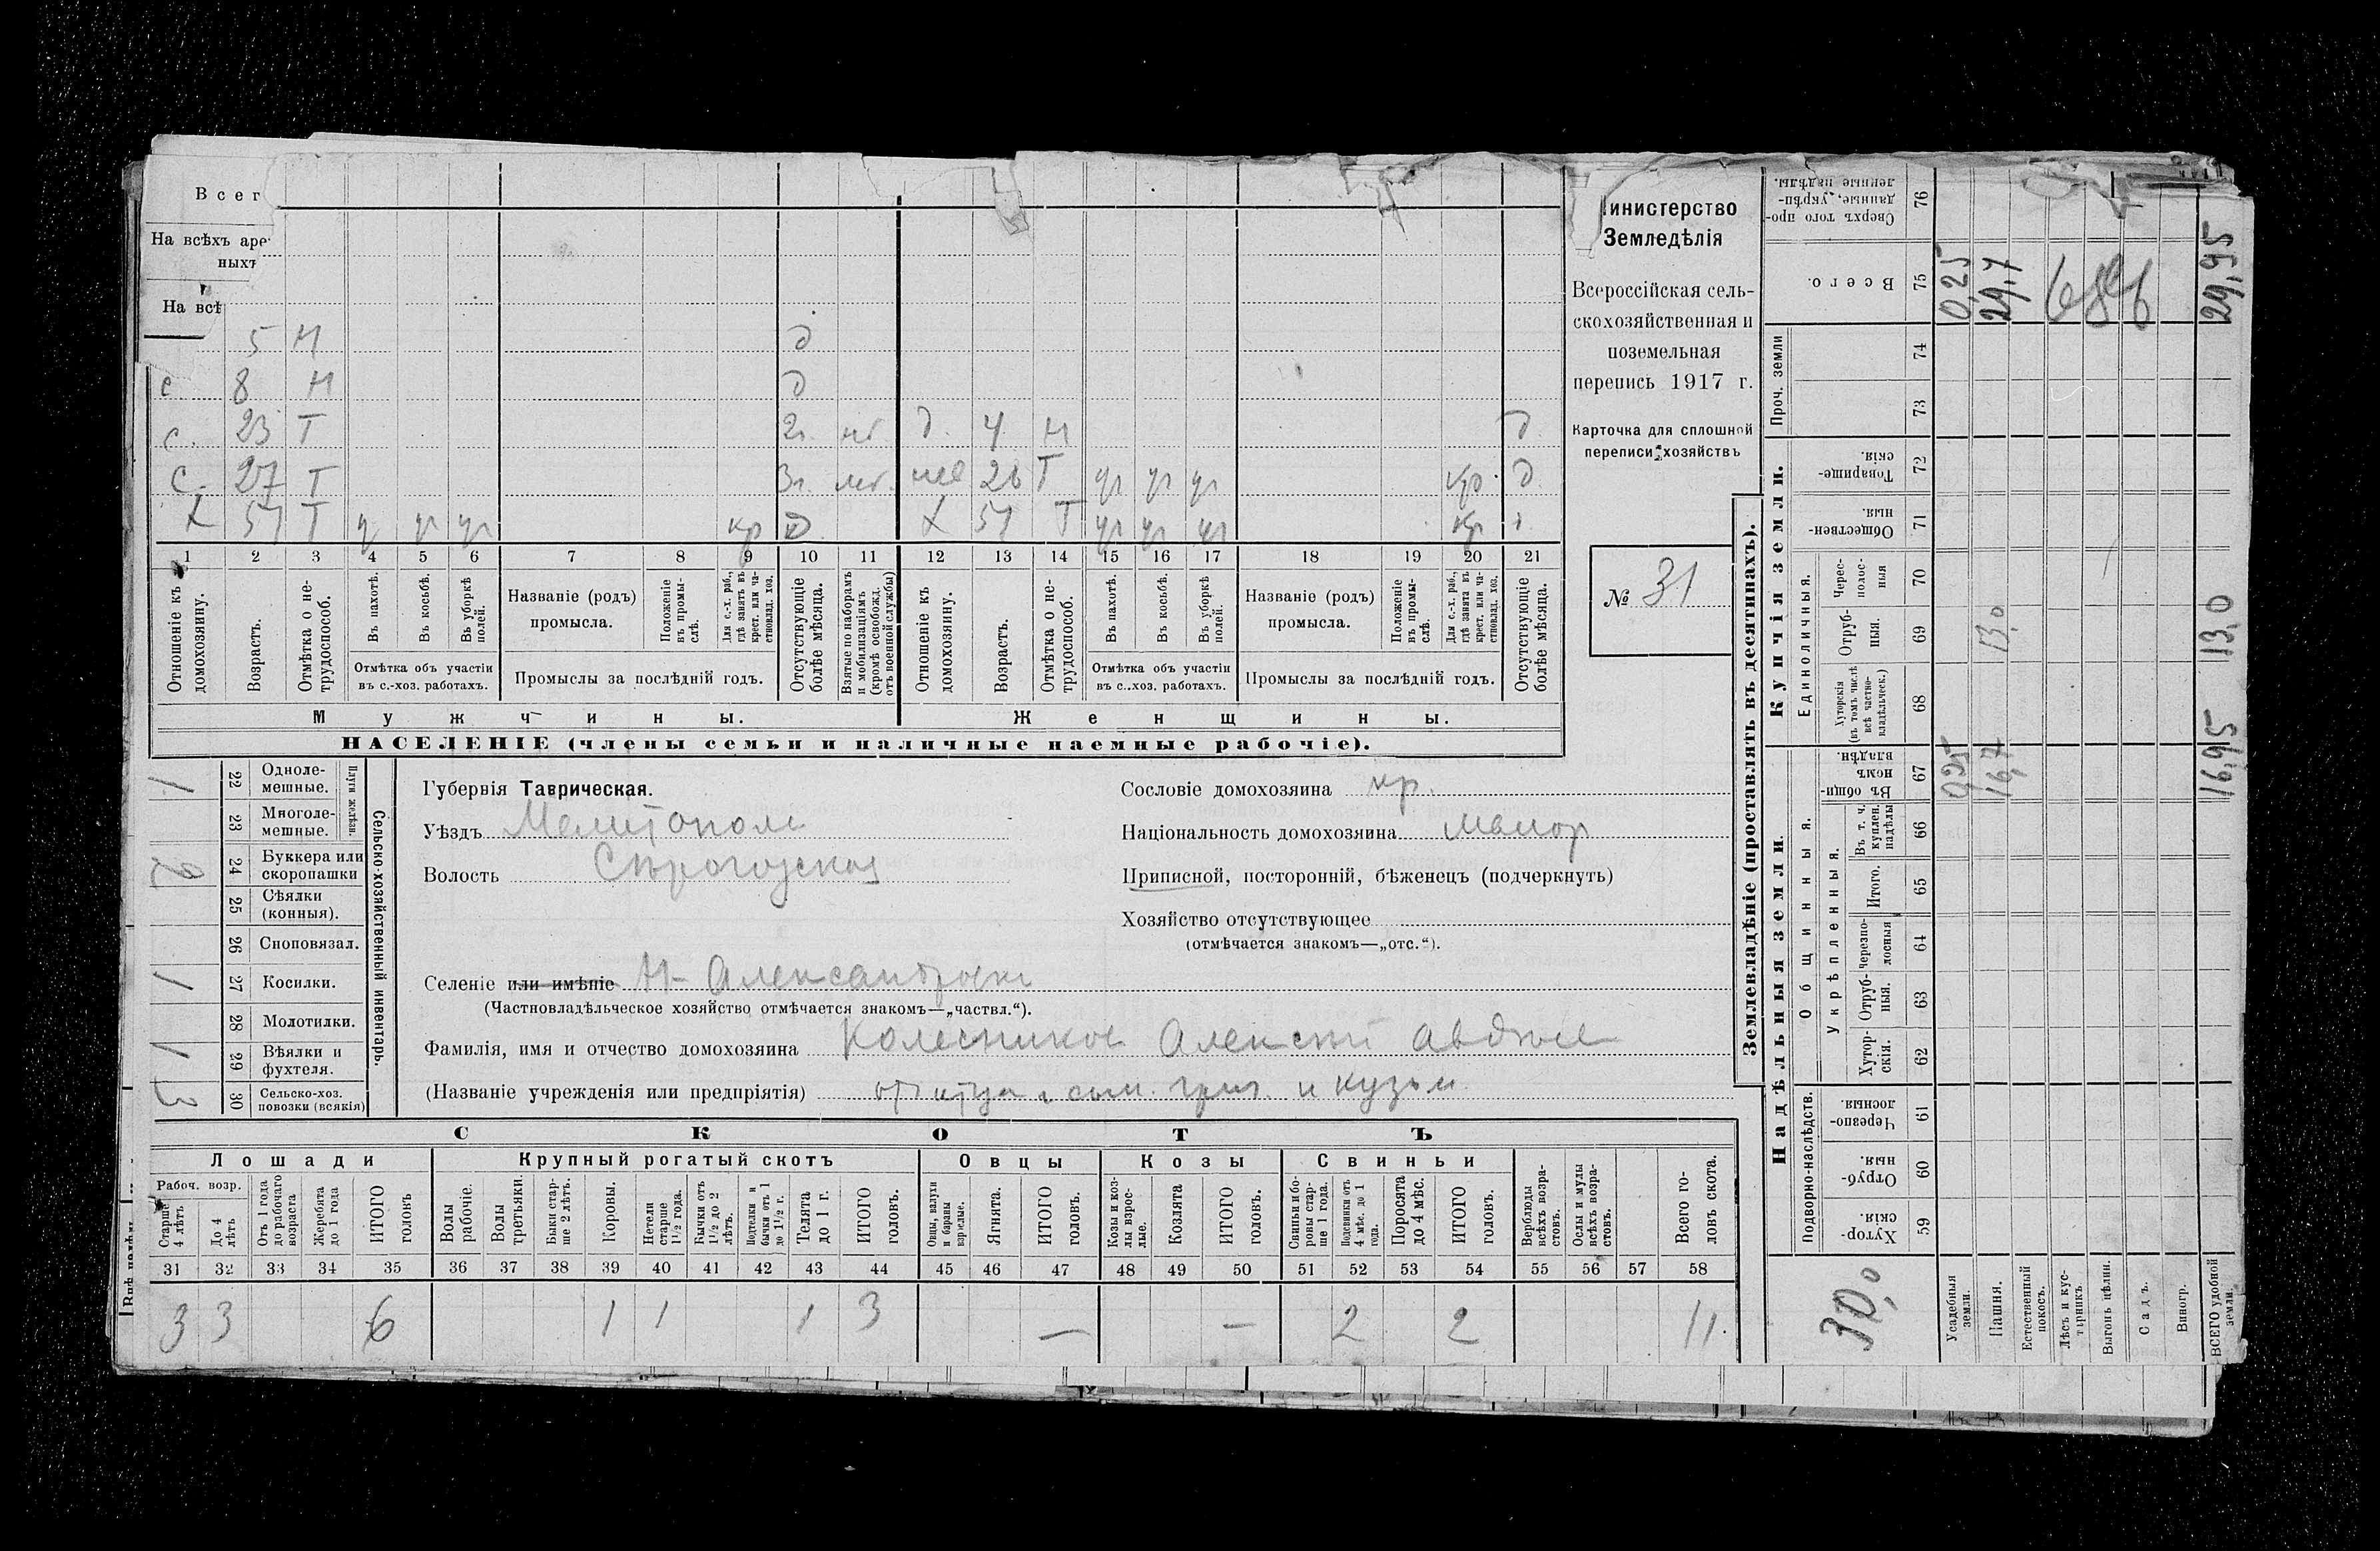 Всег
На всѣхъ аре
ныхъ
На всѣ
5 Н д
с 8 Н д
с. 23 Т 2г. мб. д. 4 Н д
с. 27 Т 3г. мб. нев 26 Т ул ул ул кр. д.
Х 51 Т ул ул кр Х 51 Т ул ул ул кр
1 2 3 4 5 6 7 8 9 10 11 12 13 14 15 16 17 18 19 20 21
Отношеніе къ домохозяину.
Возрастъ.
Отмѣтка о нетрудоспособ.
Въ пахотѣ.
Въ косьбѣ.
Въ уборкѣ полей.
Отмѣтка объ участіи
въ с.-хоз. работахъ.
Названіе (родъ)
промысла.
Положеніе въ промыслѣ.
Для с.-х. раб., гдѣ занятъ въ крест. или частновлад. хоз.
Промыслы за послѣдній годъ.
Отсутствующіе болѣе мѣсяца.
Взятые по наборамъ и мобилизаціямъ (кромѣ освобожд. отъ военной службы)
Отношеніе къ домохозяину.
Возрастъ.
Отмѣтка о нетрудоспособ.
Въ пахотѣ.
Въ косьбѣ.
Въ уборкѣ полей.
Отмѣтка объ участіи
въ с..хоз. работахъ.
Названіе (родъ)
промысла.
Положеніе въ промыслѣ.
Для с.-х. раб., гдѣ занята въ крест. или частновлад. хоз.
Промыслы за послѣдній годъ.
Отсутствующіе болѣе мѣсяца.
Мужчины. Женщины.
НАСЕЛЕНІЕ (члены семьи и наличные наемные рабочіе).
инистерство
Земледѣлія
Всероссійская сель-
скохозяйственная и
поземельная
перепись 1917 г.
Карточка для сплошной
переписи хозяйствъ
№ 31
Сельско-хозяйственный инвентарь.
Плуги желѣзн.
22 Одноле-
мешные. 1
23 Многоле-
мешные.
24 Буккера или
скоропашки 2
25 Сѣялки
(конныя).
26 Сноповязал.
27 Косилки. 1
28 Молотилки.
29 Вѣялки и
фухтеля. 1
30 Сельско-хоз.
повозки (всякія) 3
Губернія Таврическая.
Уѣздъ Мелитополь
Волость Сѣрогозская
Селеніе или имѣніе Н-Александровка
(Частновладѣльческое хозяйство отмѣчается знакомъ—„частвл.“).
Фамилія, имя и отчество домохозяина Колесников Алексѣй Авдѣев
(Названіе учрежденія или предпріятія) и Кузьм
Сословіе домохозяина кр.
Національность домохозяина малор
Приписной, посторонній, бѣженецъ (подчеркнуть)
Хозяйство отсутствующее
(отмѣчается знакомъ—„отс.“).
СКОТЪ
Лошади Крупный рогатый скотъ Овцы Козы Свиньи
Рабоч. возр.
Старше 4 лѣтъ
До 4 лѣтъ
Отъ 1 года до рабочаго возраста
Жеребята до 1 года
ИТОГО головъ
Волы рабочіе.
Волы третьяки.
Быки старше 2 лѣтъ.
Коровы.
Нетели старше 1½ года.
Бычки отъ 1½ до 2 лѣтъ.
Подтелки и бычки отъ 1 до 1½ г.
Телята до 1 г.
ИТОГО головъ.
Овцы, валухи и бараны взрослые.
Ягнята.
ИТОГО головъ.
Козы и козлы взрослые.
Козлята
ИТОГО головъ.
Свиньи и боровы старше 1 года.
Подсвинки отъ 4 мѣс. до 1 года.
Поросята до 4 мѣс.
ИТОГО головъ.
Верблюды всѣхъ возрастовъ.
Ослы и мулы всѣхъ возрастовъ.
Всего головъ скота.
31 32 33 34 35 36 37 38 39 40 41 42 43 44 45 46 47 48 49 50 51 52 53 54 55 56 57 58
3 3 6 1 1 1 3 — — 2 2 11.
Землевладѣніе (проставлять въ десятинахъ).
Надѣльныя земли. Купчія земли. Проч. земли
Подворно-наслѣдств.
Общинныя.
Укрѣпленныя.
Единоличныя.
Хутор-
скія. 59
Отруб-
ныя. 60
Черезпо-
лосныя. 61
Хутор-
скія. 62
Отруб-
ныя. 63
Черезпо-
лосныя 64
Итого. 65
Въ т. ч. куплен. надѣлы 66
Въ общинномъ владѣн. 67
Хуторскія (въ томъ числѣ всѣ частновладѣльческ.) 68
Отруб-
ныя. 69
Черес-
полос-
ныя 70
Обществен-
ныя. 71
Товарище-
скія. 72
73
74
Всего. 75
Сверхъ того проданные, укрѣпленные надѣлы. 76
30,0
Усадебныя земли. 0,25 0,25
Пашня. 16,7 13,0 29,7
Естественный покосъ.
Лѣсъ и кустарникъ
Выгонъ цѣлин.
Садъ.
Виногр.
ВСЕГО удобной земли. 16,95 13,0 29,95